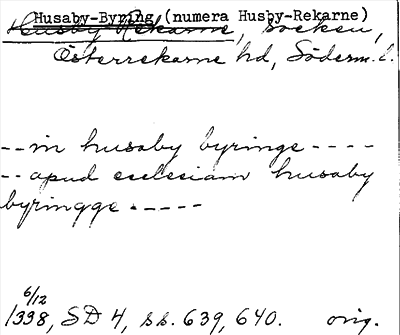 Husaby-Byring (numera Husby-Rekarne)
Husby-Rekarne, socken,
Österrekarne hd, Söderm. l.
--in husaby byringe ----
-- apud ecclesiam husaby
byringge -----
6/12
1338, SD 4, ss. 639, 640. orig.